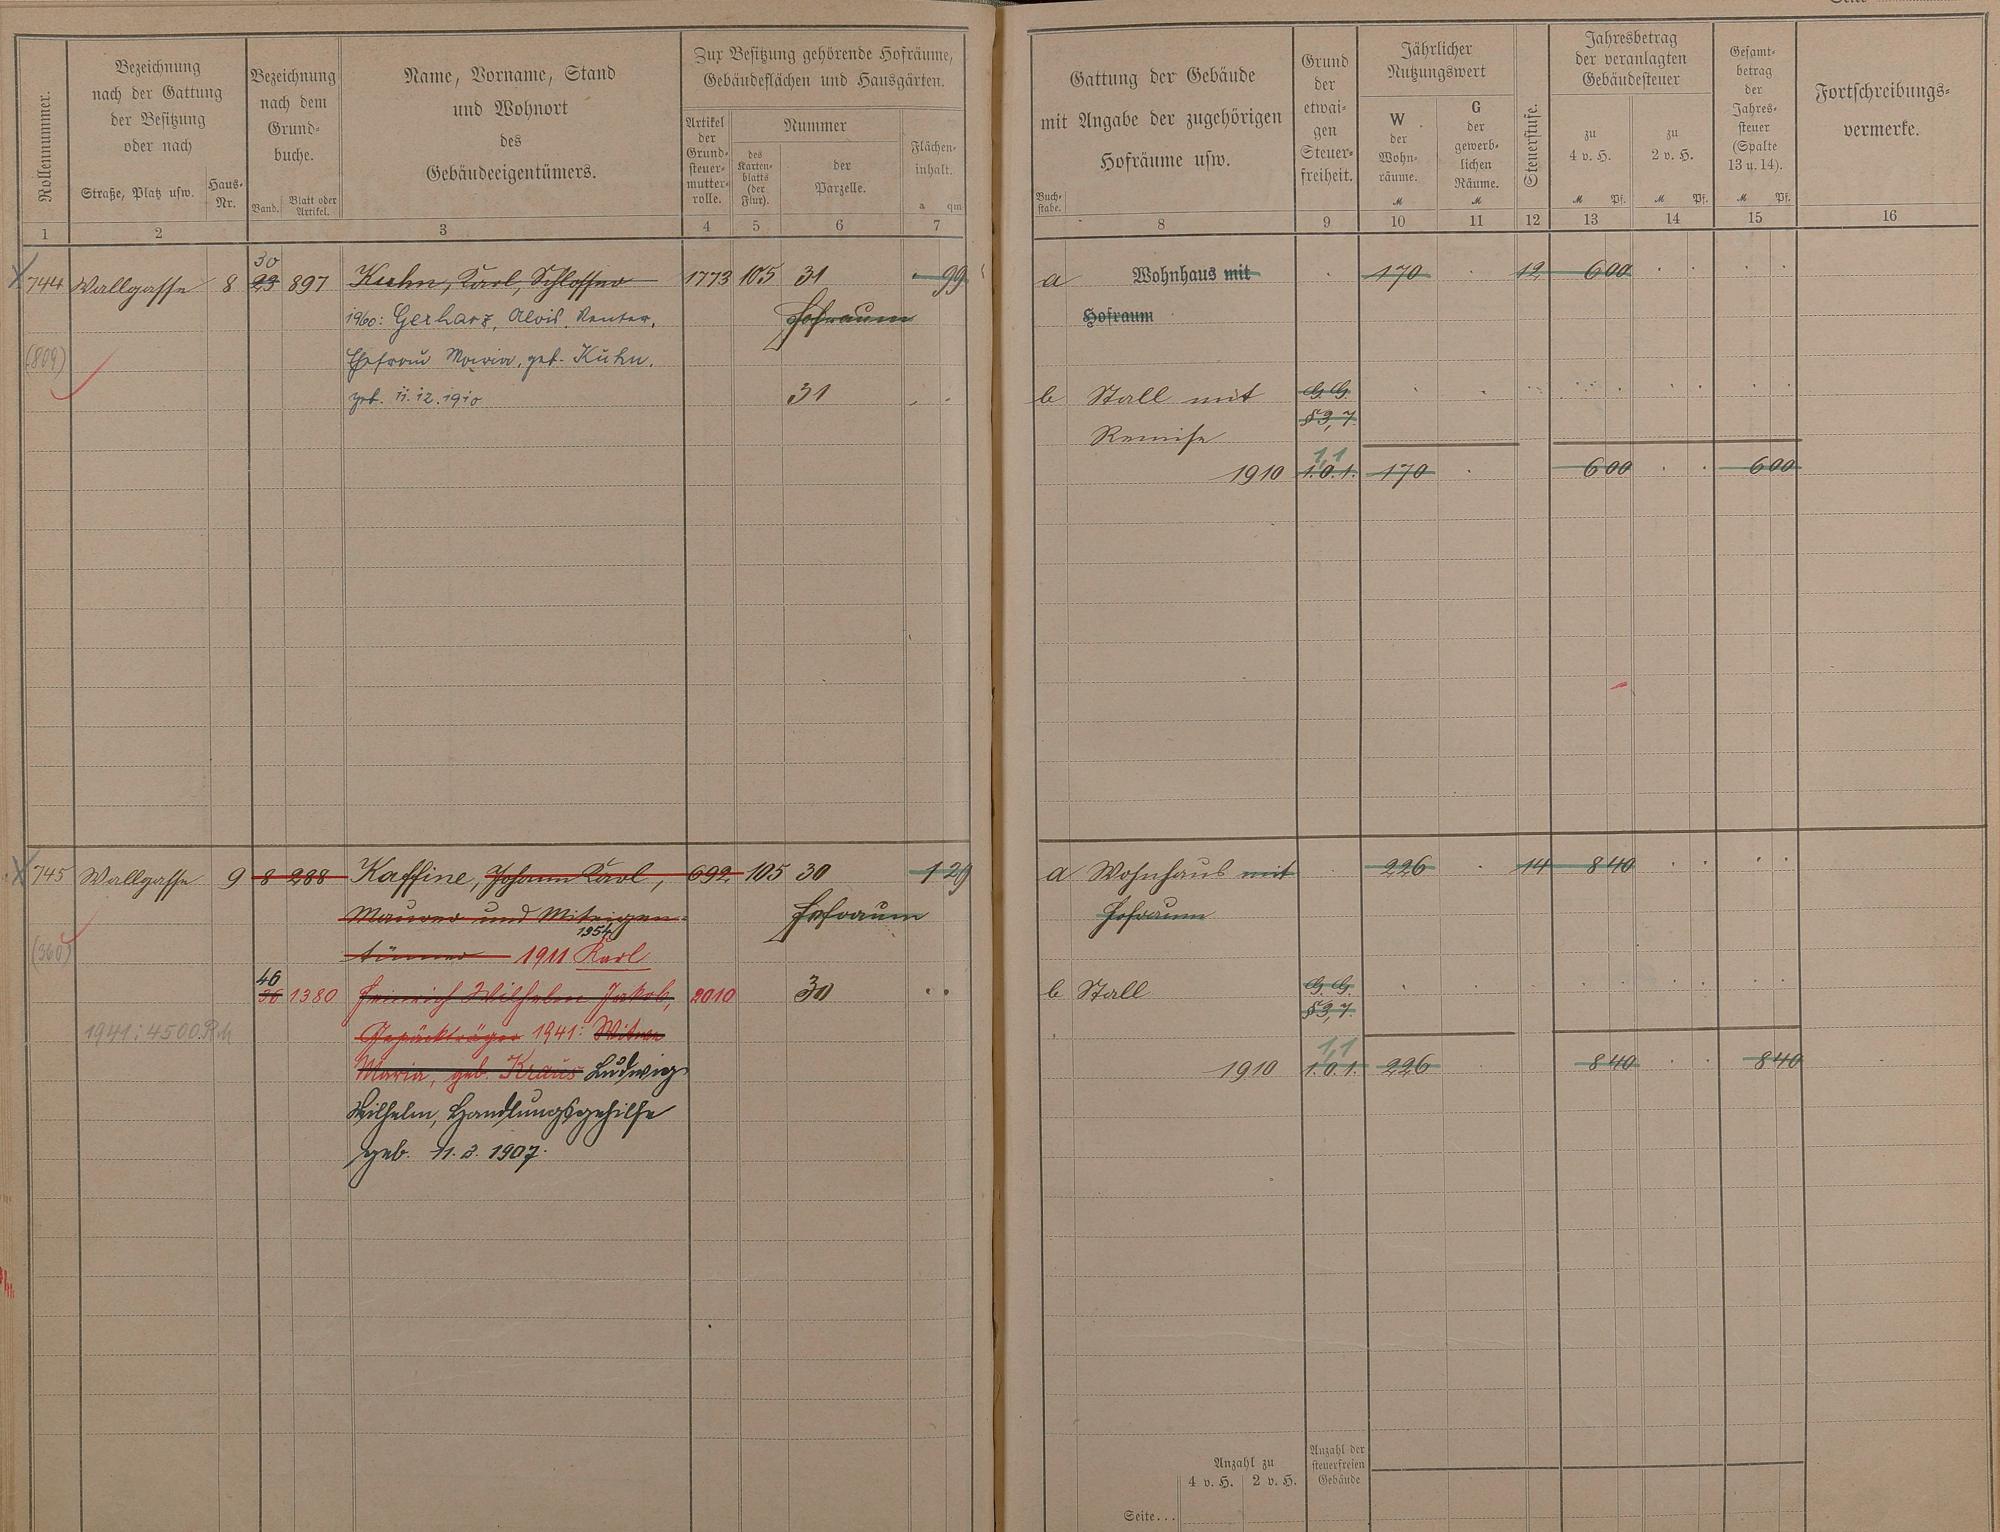 Seite
Rollennummer.
Bezeichnung
nach der Gattung
der Besitzung
oder nach
Straße, Platz usw.
Haus-
Nr.
Bezeichnung
nach dem
Grund-
buche.
Band.
Blatt oder
Artikel.
Name, Vorname, Stand
und Wohnort
des
Gebäudeeigentümers.
Zur Besitzung gehörende Hofräume,
Gebäudeflächen und Hausgärten.
Artikel
der
Grund-
steuer-
mutter-
rolle.
Nummer
des
Karten-
blatts
(der
Flur).
der
Parzelle.
Flächen-
inhalt.
a qm
1 2 3 4 5 6 7
Gattung der Gebäude
mit Angabe der zugehörigen
Hofräume usw.
Buch-
stabe.
Grund
der
etwai-
gen
Steuer-
freiheit.
Jährlicher
Nutzungswert
W
der
Wohn-
räume.
M
G
der
gewerb-
lichen
Räume.
M
Steuerstufe.
Jahresbetrag
der veranlagten
Gebäudesteuer
zu
4 v. H.
M Pf.
zu
2 v. H.
M Pf.
Gesamt-
betrag
der
Jahres-
steuer
(Spalte
13 u. 14).
M Pf.
Fortschreibungs-
vermerke.
8 9 10 11 12 13 14 15 16
30
744 Wallgasse 8 23 897 Kuhn, Karl, Schlosser 1773 105 31 99
1960: Gerharz, Alois, Rentner, Hofraum
(809) Ehefrau Maria, geb. Kuhn,
geb. 11.12.1910 31
a Wohnhaus mit 170 12 600
Hofraum
b Stall mit G. G.
Remise § 3, 7.
1,1
1910 1.0.1. 170 600 600
745 Wallgasse 9 8 288 Kaffine, Johann Karl, 692 105 30 129
Maurer und Miteigen- Hofraum
1954
(360) tümer 1911 Karl
46
36 1380 Heinrich Wilhelm Jakob, 2010 30
1941: 4500 RM Gepäckträger 1941: Witwe
Maria, geb. Kraus Ludwig
Wilhelm, Handlungsgehilfe
geb. 11.3.1907.
a Wohnhaus mit 226 14 840
Hofraum
b Stall G. G.
§ 3, 7.
1,1
1910 1.0.1. 226 840 840
Anzahl zu
4 v. H. 2 v. H.
Anzahl der
steuerfreien
Gebäude
Seite...